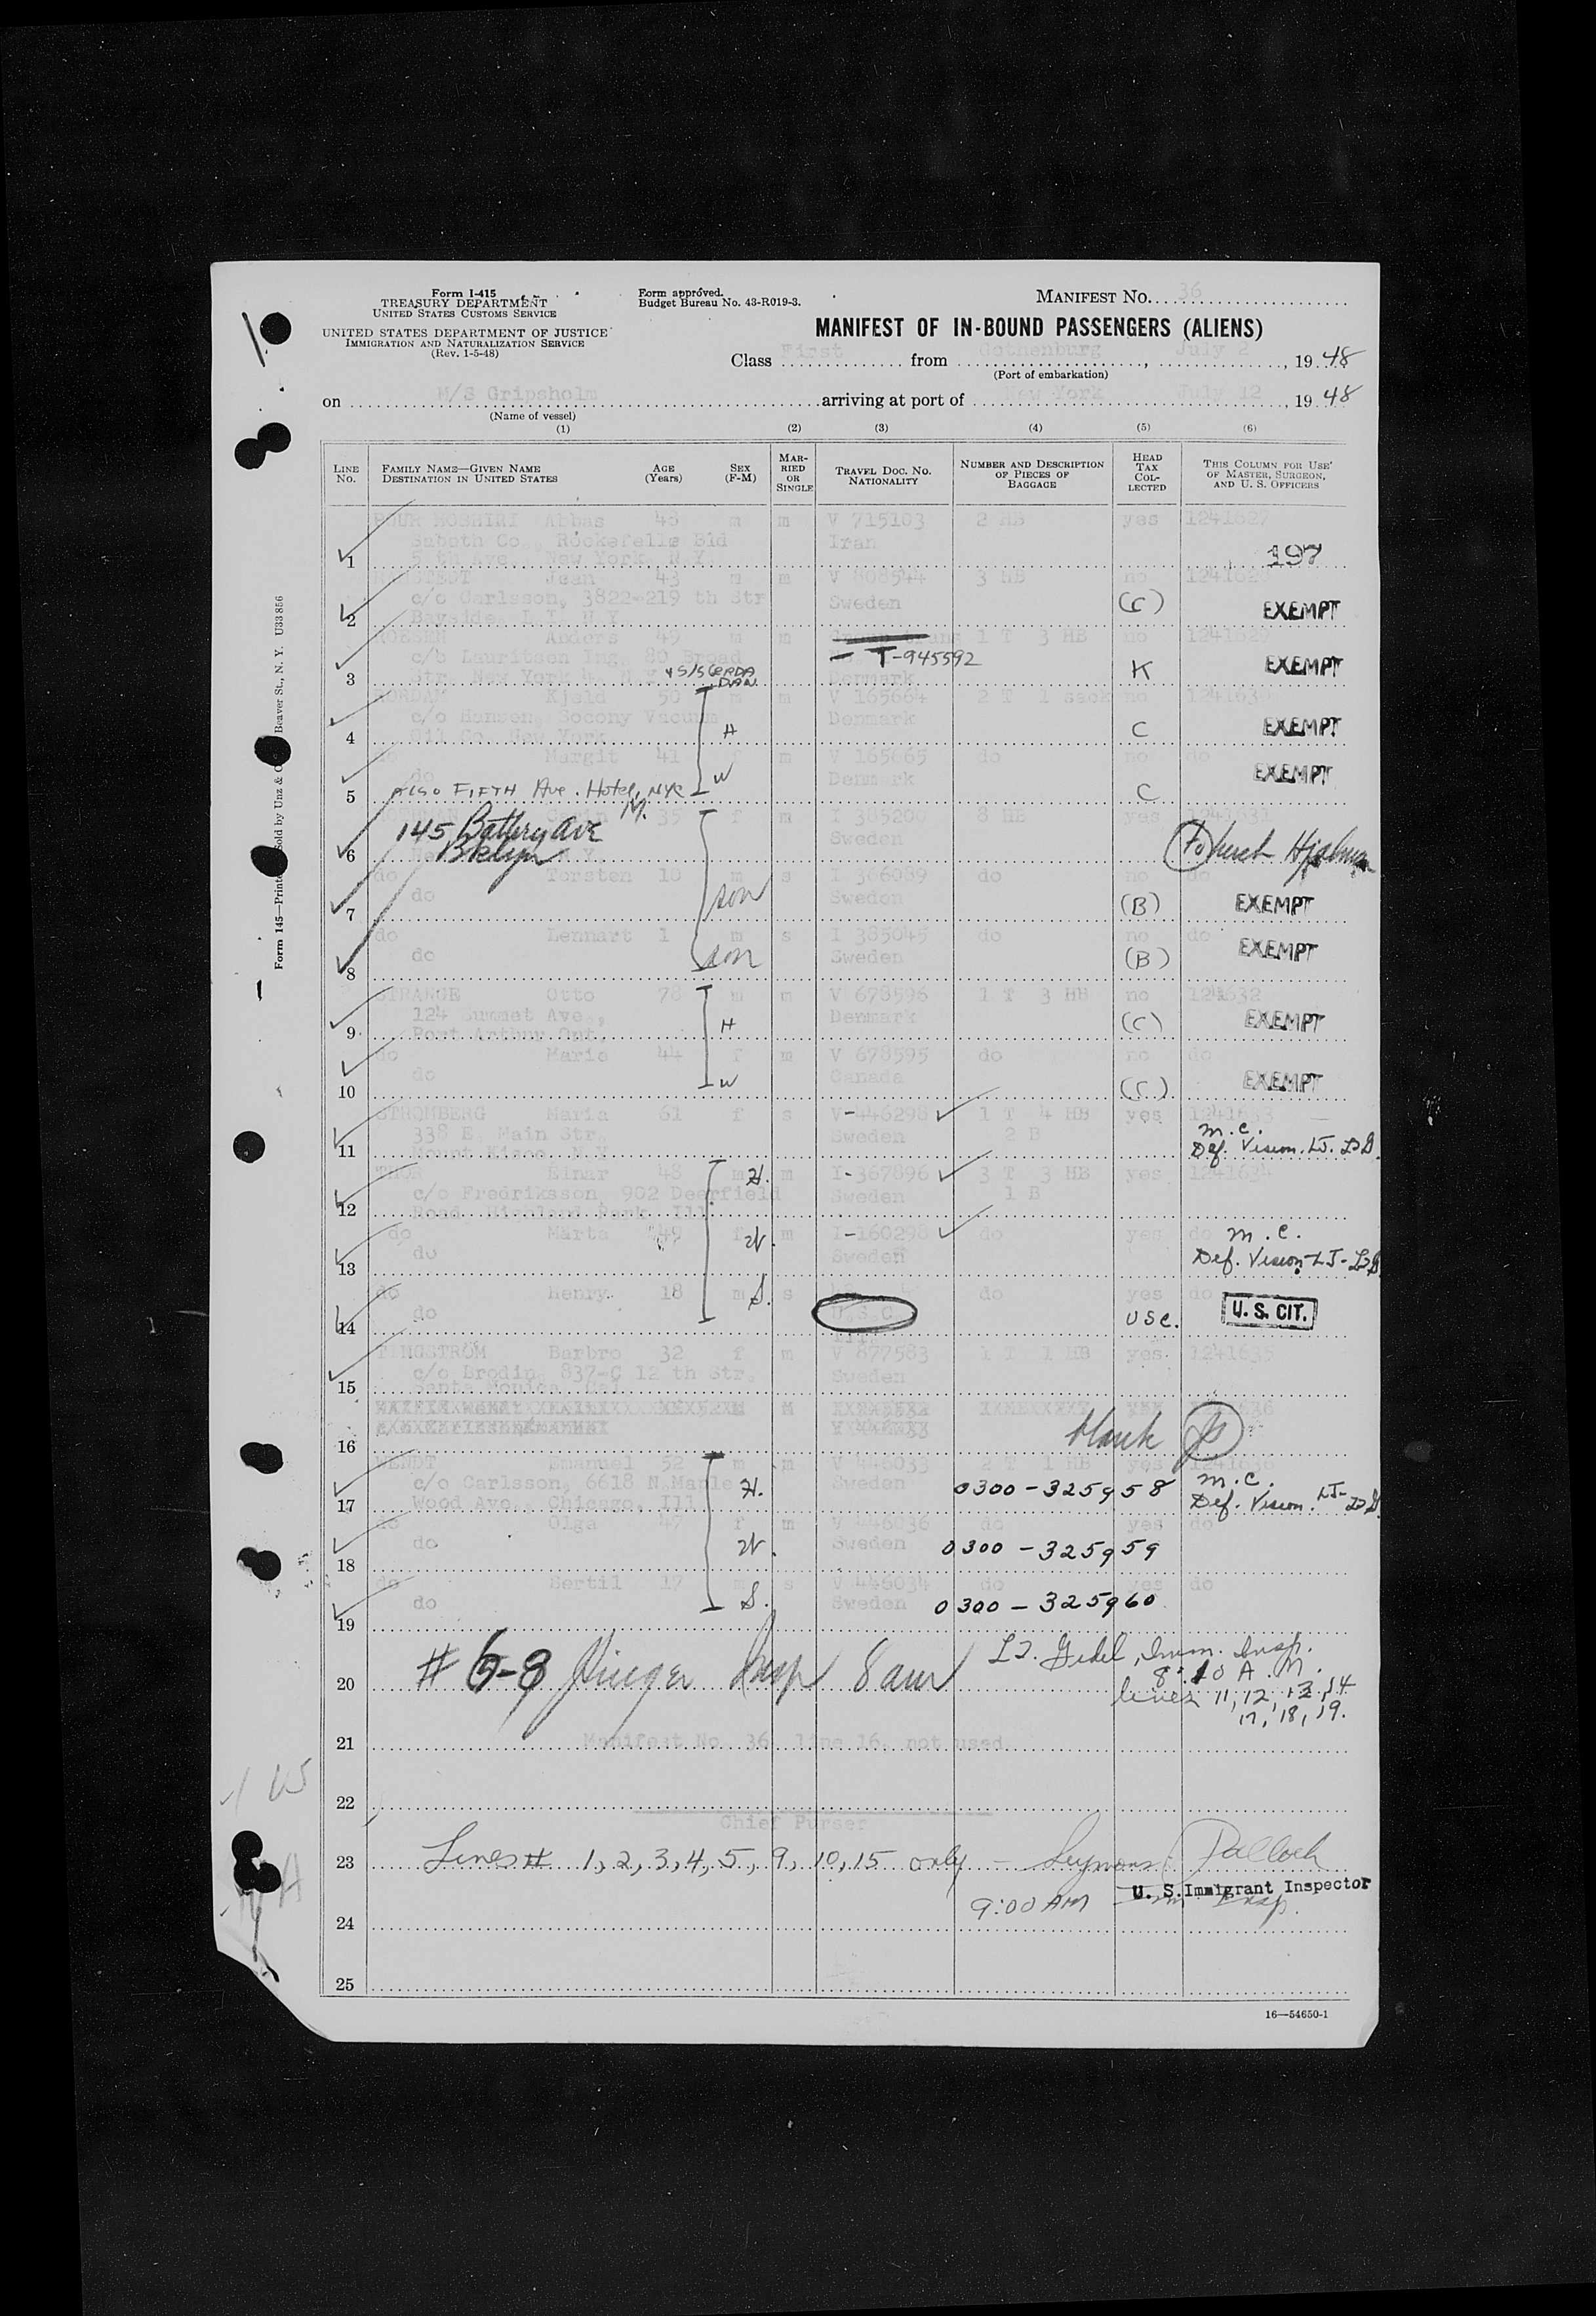 Form I-415
TREASURY DEPARTMENT
UNITED STATES CUSTOMS SERVICE
UNITED STATES DEPARTMENT OF JUSTICE
IMMIGRATION AND NATURALIZATION SERVICE
(Rev. 1-5-48)
Form approved.
Budget Bureau No. 43-R019-3.
MANIFEST NO. 36
MANIFEST OF IN-BOUND PASSENGERS (ALIENS)
Class First from Gothenburg, July 2, 19 48
(Port of embarkation)
on M/S Gripsholm arriving at port of New York July 12, 19 48
(Name of vessel)
(1) (2) (3) (4) (5) (6)
LINE No. FAMILY NAME—GIVEN NAME DESTINATION IN UNITED STATES AGE (Years) SEX (F-M) MARRIED OR SINGLE TRAVEL DOC. NO. NATIONALITY NUMBER AND DESCRIPTION OF PIECES OF BAGGAGE HEAD TAX COLLECTED THIS COLUMN FOR USE OF MASTER, SURGEON, AND U. S. OFFICERS
POUR MOSHIRI Abbas 43 m m V 715103 2 HB yes 1241627
Saboth Co., Rockefelle Bld Iran
1 5 th Ave. New York N.Y. 197
Jean 43 m m V 808544 3 HB no
c/o Carlsson, 3822-219 th Str Sweden (C)
2 Bayside L.I. N.Y. EXEMPT
Anders 49 m m 1 T 3 HB no
c/o Lauritsen Ing. 80 Broad T-945592
3 Str. New York Denmark K EXEMPT
Kjeld 50 m V 165664 2 T 1 sack no
c/o Hansen, Socony Vacuum Denmark
4 Oil Co. New York H C EXEMPT
do Margit 41 m V 165665 do no do
do Denmark
5 FIFTH Ave. Hotel, NYC W C EXEMPT
145 Battery Ave 35 f I 385200 8 HB yes
6 Bklyn Sweden
do Torsten 10 m s I 366089 do no do
do Sweden
7 son (B) EXEMPT
do Lennart 1 m s I 385045 do no do
do Sweden
8 son (B) EXEMPT
STRANGE Otto 78 m m V 678596 1 T 3 HB no
124 Summet Ave., Denmark
9 Port Arthur Ont. H (C) EXEMPT
do Marie 44 f m V 678595 do no do
do Canada
10 W (C) EXEMPT
STROMBERG Maria 61 f s V-446298 1 T 4 HB yes
338 E. Main Str. Sweden 2 B m.c.
11 Mount Kisco N.Y. Def. Vision.
THOR Einar 48 m H. m I-367896 3 T 3 HB yes 1241634
c/o Fredriksson, 902 Deerfield Sweden 1 B
12 Road, Highland Park, Ill
do Marta 49 f W. m I-160298 do yes do m.c.
do Sweden
13 Def. Vision
do Henry 18 m S. s do yes do
do U.S.C.
14 USC. U. S. CIT.
Barbro 32 f m V 877583 1 T 1 HB yes 1241635
c/o Brodin, 837-C 12 th Str. Sweden
15 Santa Monica, Cal
16 blank
WENDT Emanuel 52 m m V 446033 2 T 1 HB yes
c/o Carlsson, 6618 N Maple H. Sweden 0300-325958 m.c.
17 Wood Ave., Chicago, Ill Def. Vision.
do Olga 47 f m V 446036 do yes do
do W. Sweden 0300-325959
18
do Bertil 17 m s V 446034 do yes do
do S. Sweden 0300-325960
19
# 6-8 Insp 8 am Imm. Insp.
20 8:10 A.M.
lines 11, 12, 13, 14
17, 18, 19.
21 Manifest No. 36, line 16, not used.
22
Chief Purser
23 Lines # 1, 2, 3, 4, 5, 9, 10, 15 only — Seymour Pollock
U. S. Immigrant Inspector
24 9:00 AM Imm Insp.
25
16—54650-1